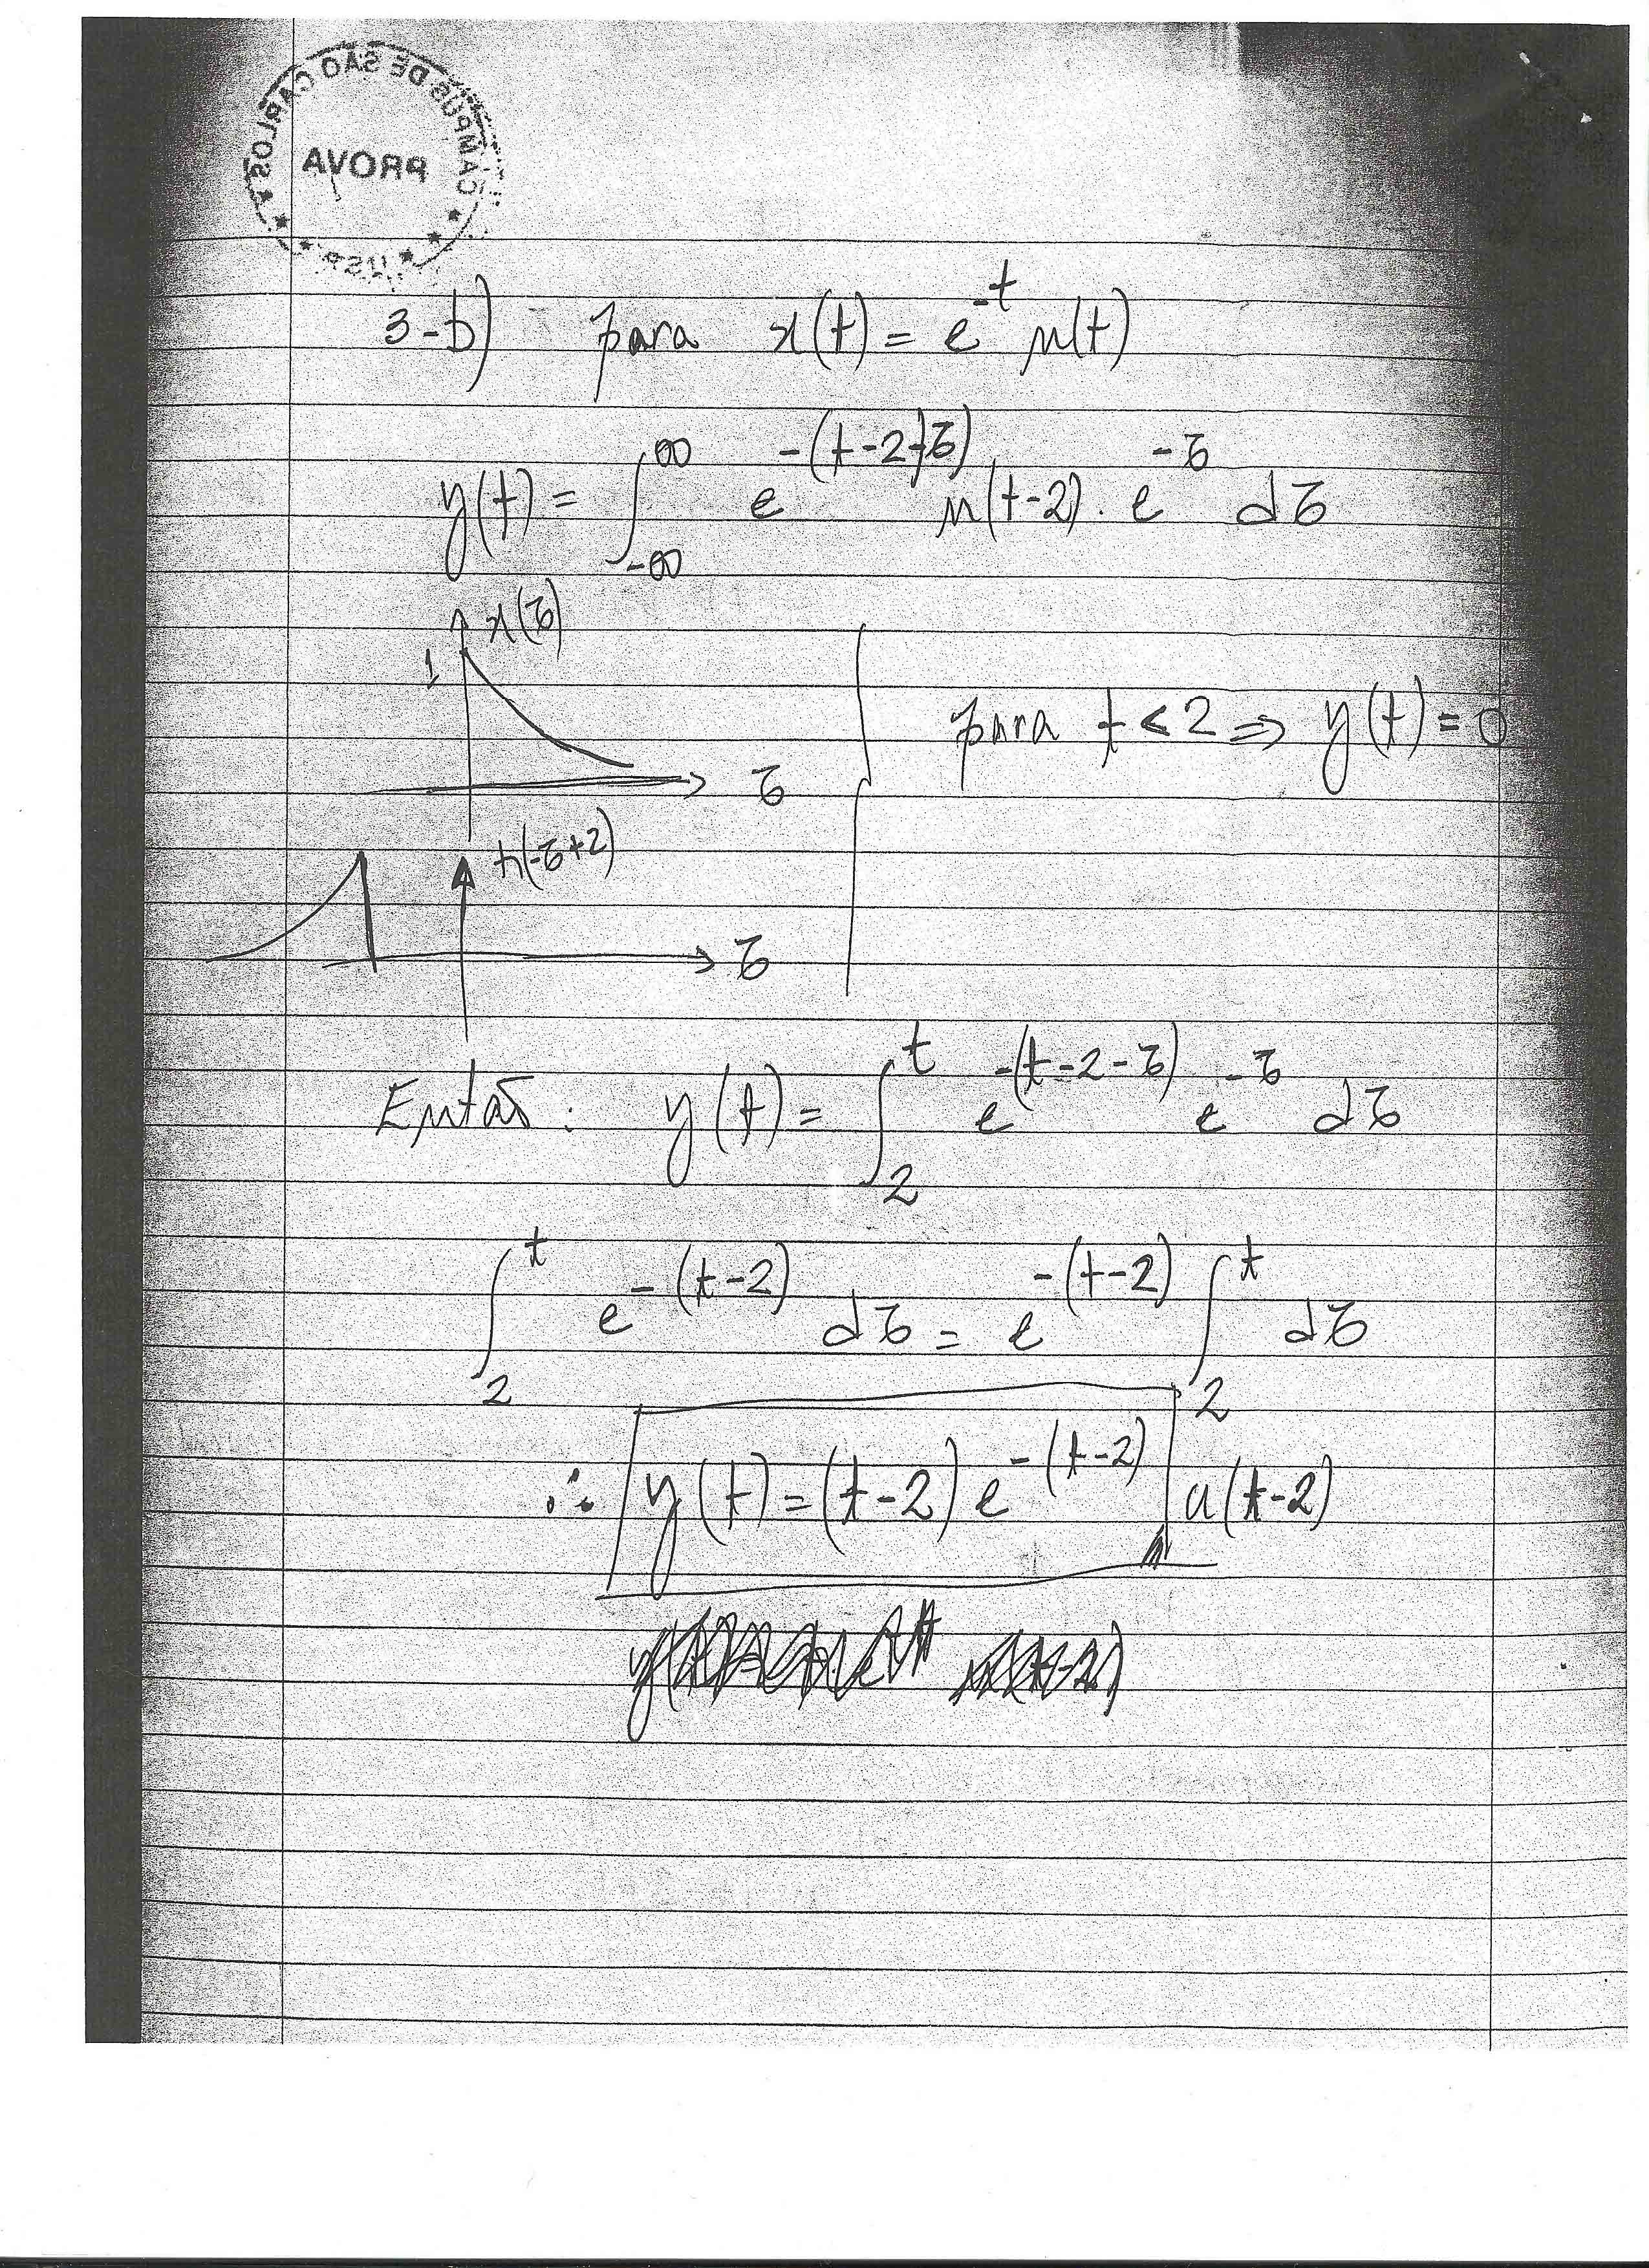 CAMPUS DE SÃO CARLOS
PROVA
USP
3-b) para x(t) = e^{-t} u(t)
y(t) = ∫_{-∞}^{∞} e^{-(t-2-τ)} u(t-2) . e^{-τ} dτ
x(τ)
1
para t < 2 ⇒ y(t) = 0
τ
h(-τ+2)
τ
Então: y(t) = ∫_{2}^{t} e^{-(t-2-τ)} e^{-τ} dτ
∫_{2}^{t} e^{-(t-2)} dτ = e^{-(t-2)} ∫_{2}^{t} dτ
∴ y(t) = (t-2) e^{-(t-2)} u(t-2)